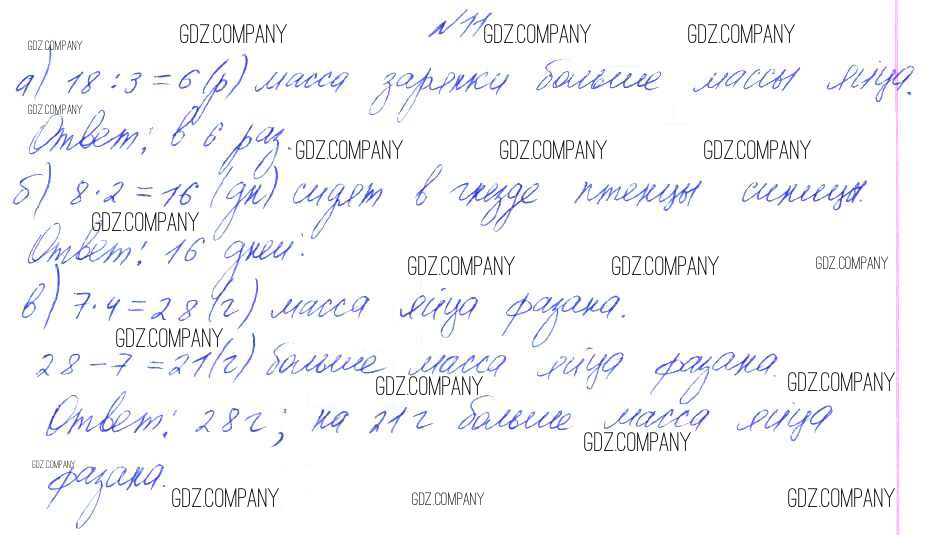 №11
а) 18 : 3 = 6 (р) масса зарянки больше массы яйца.
Ответ: в 6 раз.
б) 8 · 2 = 16 (дн) сидят в гнезде птенцы синицы.
Ответ: 16 дней.
в) 7 · 4 = 28 (г) масса яйца фазана.
28 – 7 = 21 (г) больше масса яйца фазана.
Ответ: 28 г; на 21 г больше масса яйца
фазана.
GDZ.COMPANY GDZ.COMPANY GDZ.COMPANY
GDZ.COMPANY
GDZ.COMPANY
GDZ.COMPANY GDZ.COMPANY GDZ.COMPANY
GDZ.COMPANY
GDZ.COMPANY GDZ.COMPANY GDZ.COMPANY
GDZ.COMPANY
GDZ.COMPANY GDZ.COMPANY
GDZ.COMPANY
GDZ.COMPANY
GDZ.COMPANY GDZ.COMPANY GDZ.COMPANY